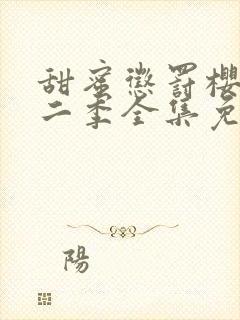 甜蜜懲罰櫻
二季全集免
陽